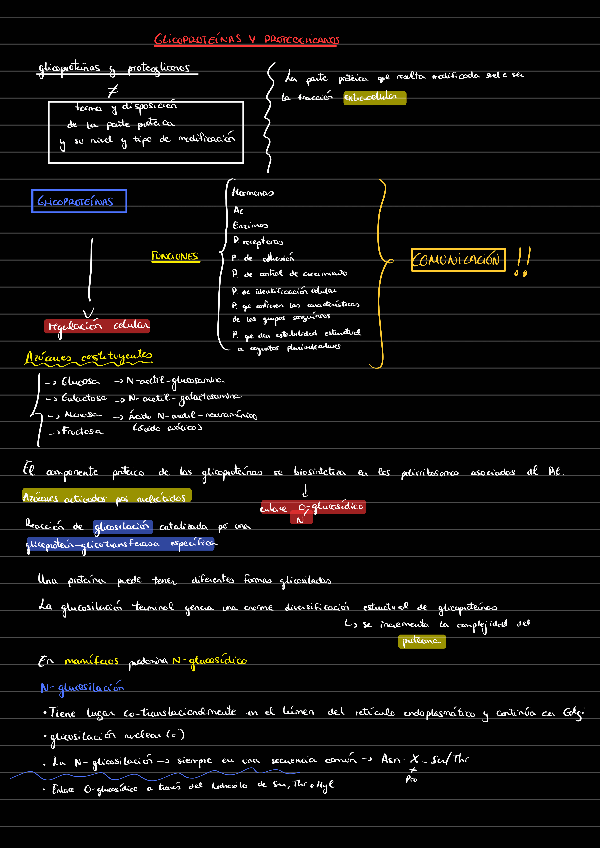 GLICOPROTEÍNAS Y PROTEOGLICANOS
glicoproteínas y proteoglicanos
≠
forma y disposición
de la parte proteica
y su nivel y tipo de modificación
La parte proteica que resulta modificada suele ser
la fracción extracelular
GLICOPROTEÍNAS
regulación celular
FUNCIONES
Hormonas
Ac
Enzimas
P. receptoras
P. de adhesión
P. de control de crecimiento
P. de identificación celular
P. que confieren las características
de los grupos sanguíneos
P. que dan estabilidad estructural
a organismos pluricelulares
COMUNICACIÓN !!
Azúcares constituyentes
→ Glucosa → N-acetil-glucosamina
→ Galactosa → N-acetil-galactosamina
→ Manosa → Ácido N-acetil-neuramínico
→ Fructosa (ácido siálico)
El componente proteico de las glicoproteínas se biosintetiza en los polirribosomas asociados al
Azúcares activados por nucleótidos
enlace O-glucosídico
N
Reacción de glicosilación catalizada por una
glicoproteín-glicotransferasa específica
Una proteína puede tener diferentes formas glicosiladas
La glucosilación terminal genera una enorme diversificación estructural de glicoproteínas
↳ se incrementa la complejidad del
proteoma
En mamíferos predomina N-glucosídico
N-glucosilación
• Tiene lugar co-traslacionalmente en el lúmen del retículo endoplasmático y continúa en Golgi.
• glucosilación nuclear (=)
• La N-glicosilación → siempre en una secuencia común → Asn - X - Ser/Thr
≠
Pro
• Enlace O-glucosídico a través del hidroxilo de Ser, Thr o Hyl